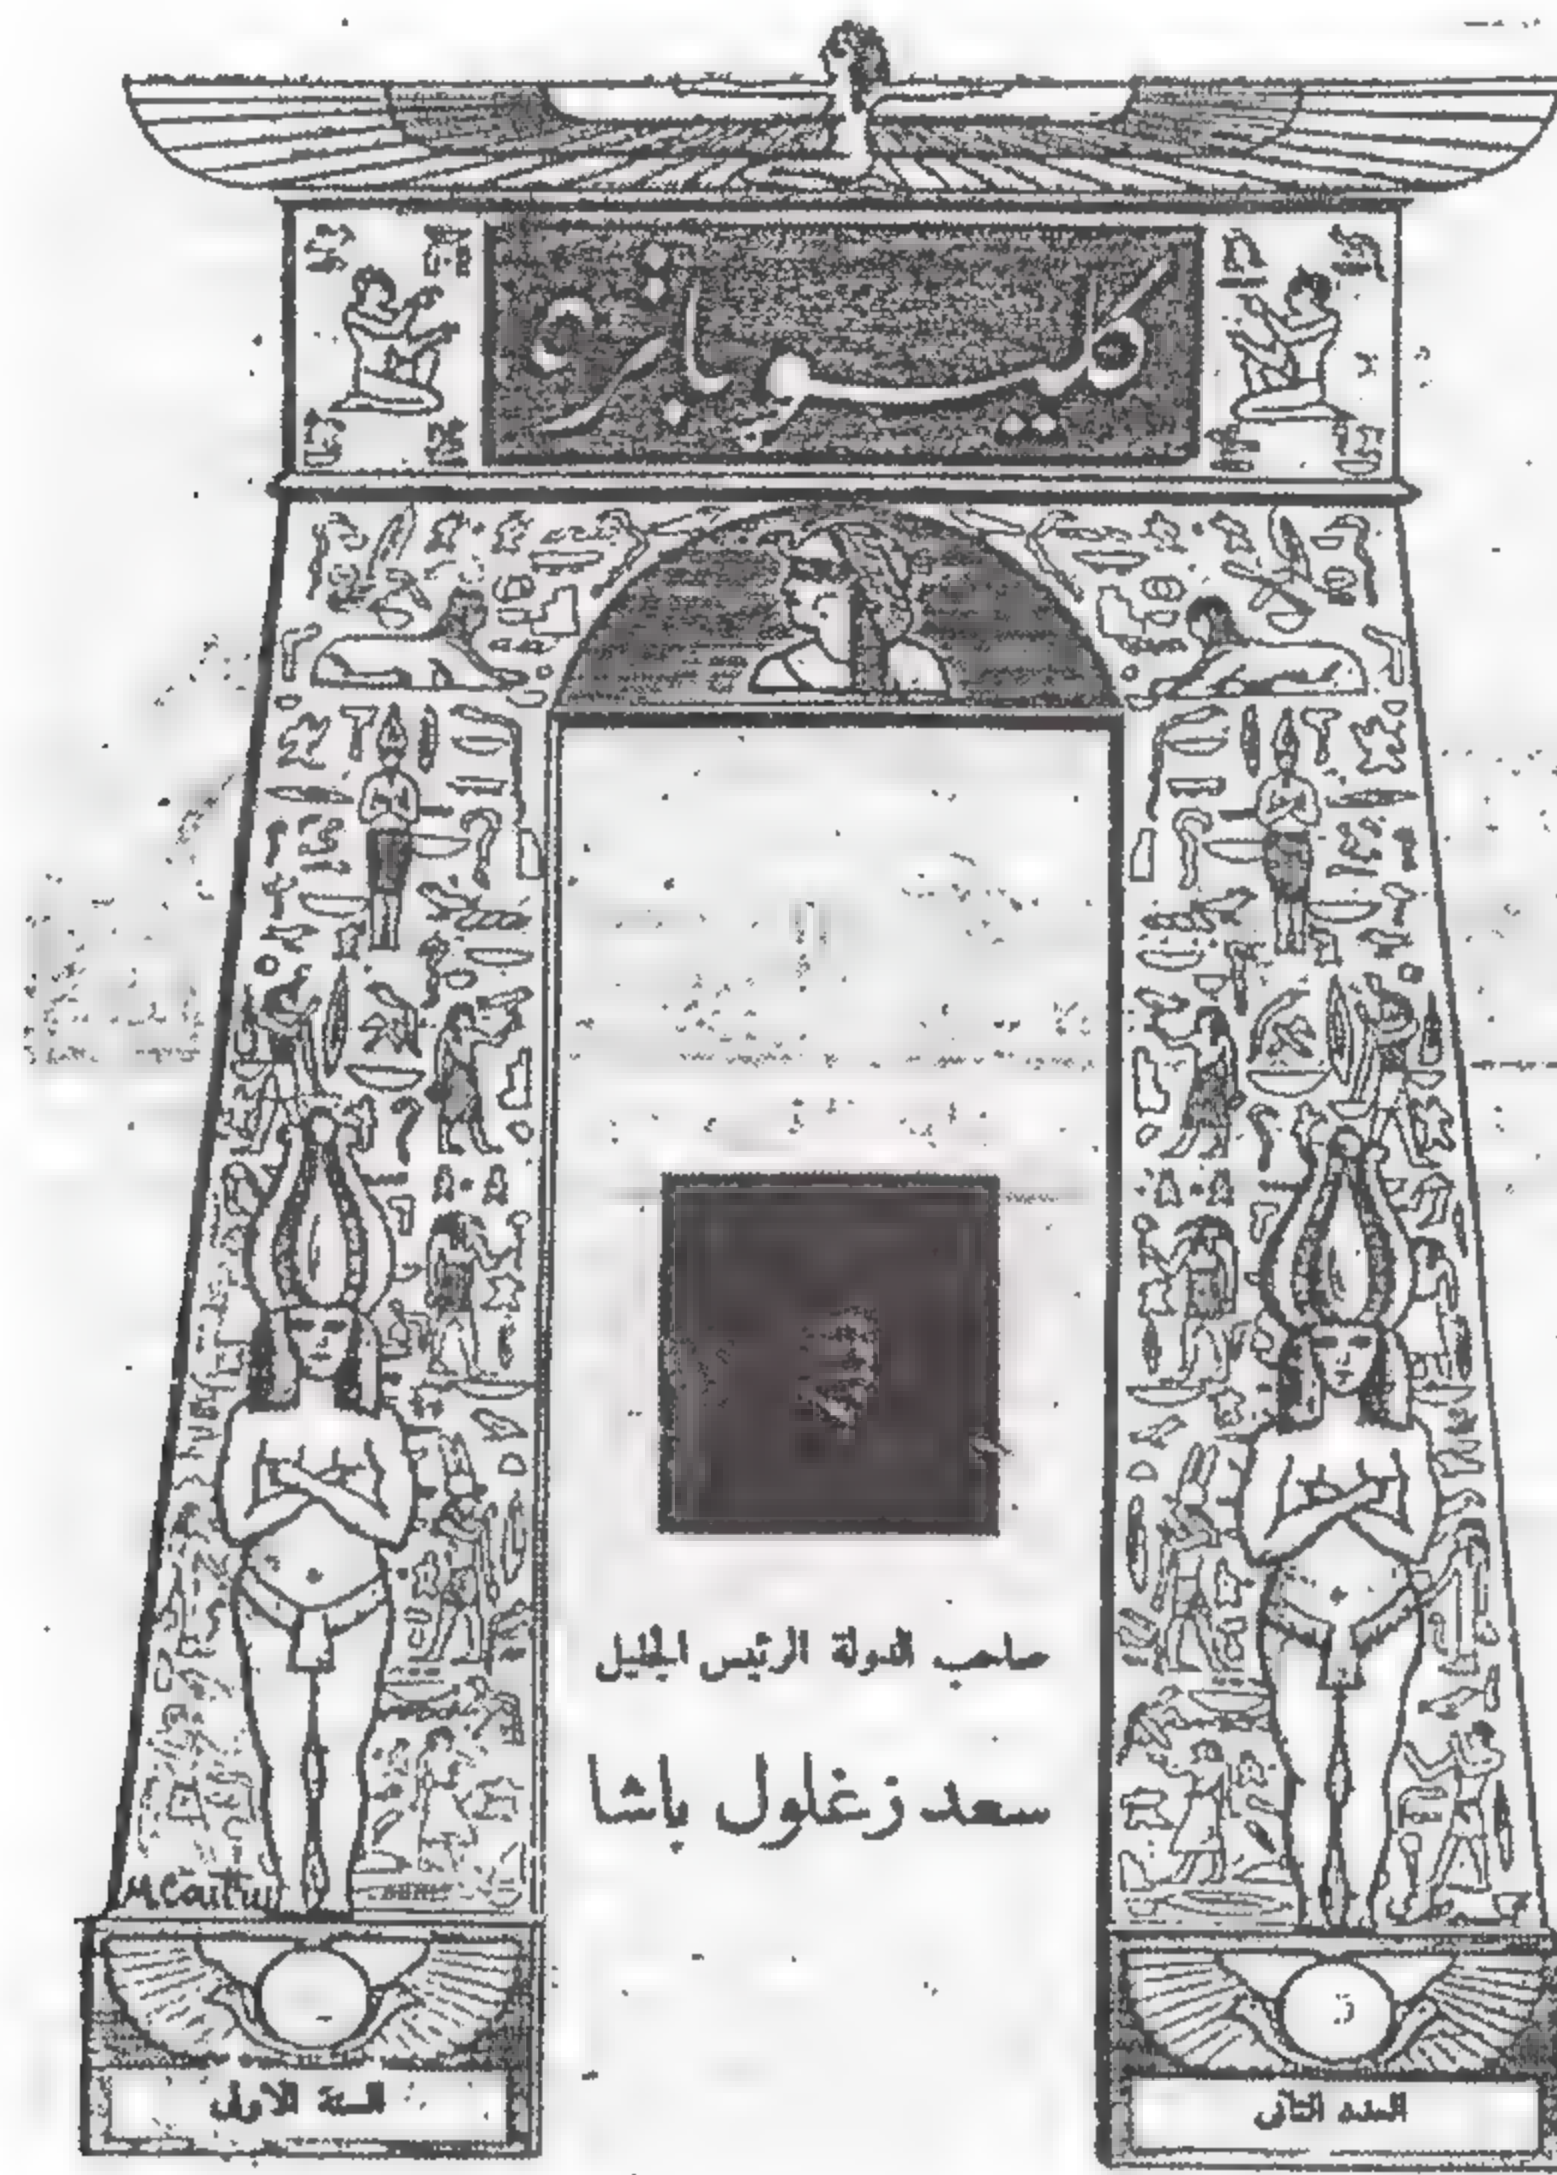 كليوباترة
صاحب الدولة الرئيس الجليل
سعد زغلول باشا
العدد الثاني
السنة الاولى